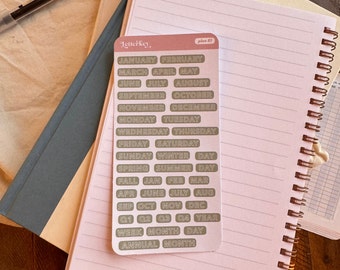 JANUARY FEBRUARY
MARCH APRIL MAY
JUNE JULY AUGUST
SEPTEMBER OCTOBER
NOVEMBER DECEMBER
MONDAY TUESDAY
WEDNESDAY THURSDAY
FRIDAY SATURDAY
SUNDAY WINTER DAY
SPRING SUMMER
FALL JAN FEB MAR
APR JUNE JULY AUG
SEP OCT NOV DEC
Q1 Q2 Q3 Q4 YEAR
WEEK MONTH DAY
ANNUAL MONTH